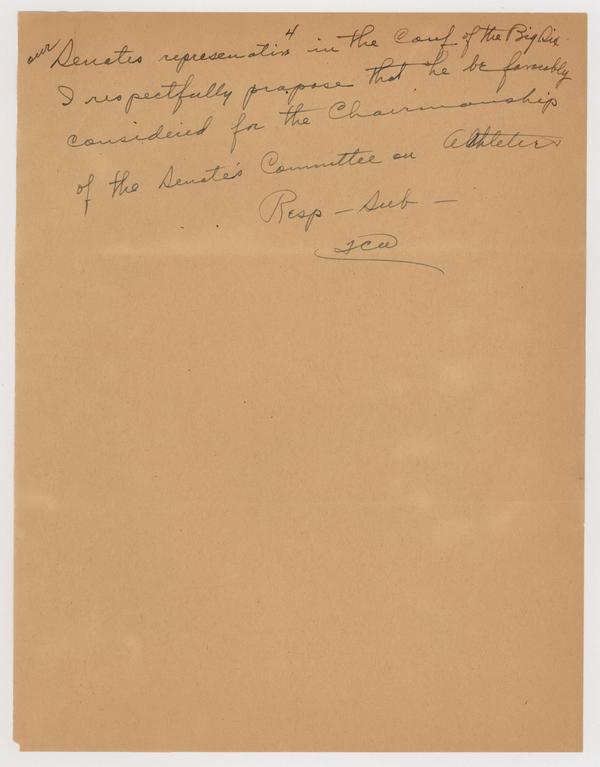 our Senates representativ 4 in the Conf of the Big Six
I respectfully propose that he be favorably
considered for the Chairmanship
of the Senate's Committee on Athletics
Resp - Sub -